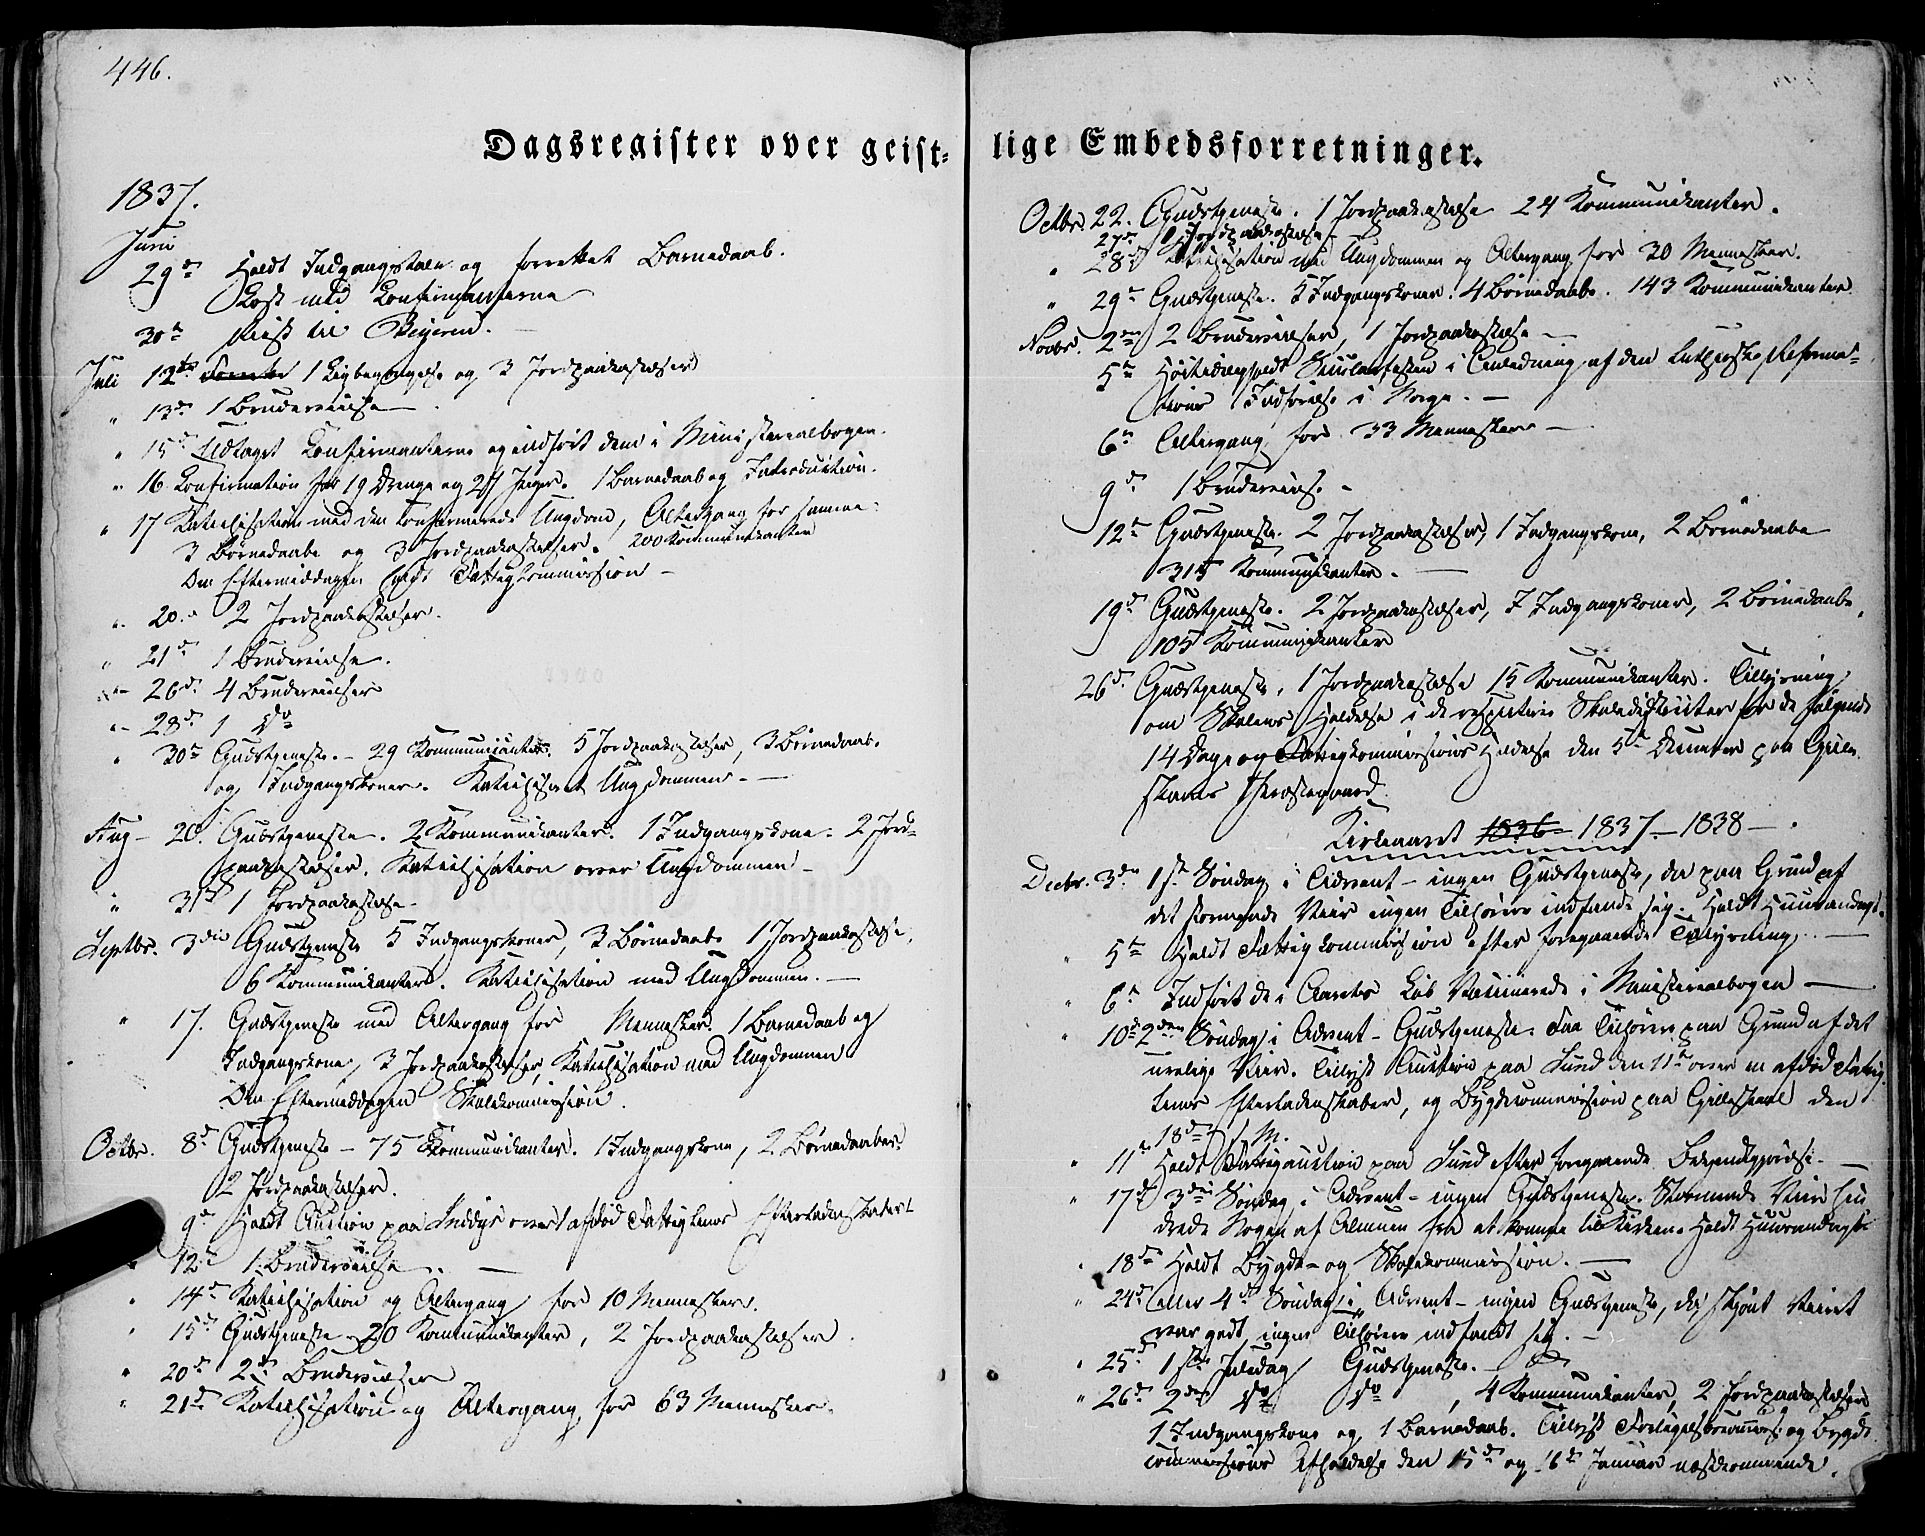 446.
Dagsregister over geist-
lige Embedsforretninger.
1837.
Juni
29de Holdt Indgangstale og forrettet Barnedaab.
Læst med Confirmanterne
30te Reist til Beieren. -
Juli 12te 1 Ligbegængelse og 3 Jordpaakastelser
" 13de 1 Brudevielse
" 15de Udtaget Confirmanterne og indført dem i Ministerialbogen.
" 16 Confirmation for 19 Drenge og 27 Piger. 1 Barnedaab og Introduction.
" 17 Katechisation med den confirmerede Ungdom, Altergang for samme.
3 Børnedaabe og 3 Jordpaakastelser. 200 Kommunikanter
Om Eftermiddagen holdt Fattigkommission -
" 20. 2 Jordpaakastelser.
" 21de 1 Brudevielse.
" 26de 4 Brudevielser
" 28de 1 do
" 30te Gudstjeneste. - 29 Kommunikanter. 5 Jordpaakastelser, 3 Børnedaab.
og Indgangskoner. Katechiseret Ungdommen. -
Aug - 20. Gudstjeneste. 2 Kommunikanter. 1 Indgangskone. 2 Jord-
paakastelser. Katechisation over Ungdommen -
" 31te 1 Jordpaakastelse.
Septbr. 3die Gudstjeneste 5 Indgangskoner, 3 Børnedaab 1 Jordpaakastelse,
6 Kommunikanter. Katechisation med Ungdommen. -
" 17. Gudstjeneste med Altergang for Mennesker. 1 Barnedaab og
Indgangskone, 3 Jordpaakastelser, Katechisation med Ungdommen
Om Eftermiddagen Skolekommission.
Octbr. 8de Gudstjeneste - 75 Kommunikanter. 1 Indgangskone, 2 Børnedaaber.
2 Jordpaakastelser.
9de Holdt Auction paa over 1 afdød Fattiglems Efterladenskaber
" 12te 1 Brudevielse. -
" 14de Katechisation og Altergang for 10 Mennesker.
" 15de Gudstjeneste - 20 Kommunikanter, 2 Jordpaakastelser.
" 20de 2de Brudevielser
" 21de Katechisation og Altergang for 63 Mennesker.
Octbr. 22. Gudstjeneste. 1 Jordpaakastelse 24 Kommunikanter.
27de 1 Jordpaakastelse -
" 28de Katechisation med Ungdommen og Altergang for 30 Mennesker.
" 29de Gudstjeneste. 5 Indgangskoner. 4 Børnedaabe. 143 Kommunikanter
Novbr. 2den 2 Brudevielser, 1 Jordpaakastelse -
5te Høitideligholdt Jubelfesten i Anledning af den Lutherske Reforma-
tions Indførelse i Norge. -
6te Altergang for 33 Mennesker -
9de 1 Brudevielse -
12te Gudstjeneste. 2 Jordpaakastelser, 1 Indgangskone, 2 Børnedaabe
315 Kommunikanter. -
19de Gudstjeneste. 2 Jordpaakastelser, 7 Indgangskoner, 2 Børnedaabe,
105 Kommunikanter
26de Gudstjeneste, 1 Jordpaakastelse 15 Kommunikanter. Tillysning
om Skolens Holdelse i de respective Skoledistricter for de følgende
14 Dage og Fattigkommissions Holdelse den 5te December paa Gilde-
skaals Præstegaard.
Kirkeaaret 1836- 1837 - 1838 - .
Decbr. 3die 1ste Søndag i Advent - ingen Gudstjeneste, da paa Grund af
det stormende Veir ingen Tilhørere indfandt sig. Holdt Huusandagt.
" 5te Holdt Fattigkommission efter foregaaende Tillysning. -
" 6te Indført de i Aarets Løb Vaccinerede i Ministerialbogen -
" 10de 2den Søndag i Advent - Gudstjeneste. Faa Tilhørere paa Grund af det
urolige Veir. Tillyst Auction paa Sund den 11te over en afdød Fattig-
lems Efterladenskaber, og Bygdecommission paa Gildeskaal den
18de d. M.
" 11te Holdt Fattigauction paa Sund efter foregaaende Bekjendtgjørelse. -
" 17de 3die Søndag i Advent - ingen Gudstjeneste. Stormende Veir hin-
drede Nogen af Almuen fra at komme til Kirken. Holdt Huusandagt
" 18de Holdt Bygde- og Skolekommission. -
" 24de eller 4de Søndag i Advent - ingen Gudstjeneste, da, skjønt Veiret
var godt, ingen Tilhørere indfandt sig. -
" 25de 1ste Juledag Gudstjeneste. -
" 26de 2den do do, 4 Kommunikanter, 2 Jordpaakastelser
1 Indgangskone og 1 Barnedaab. Tillyst Forligelsescommiss: og Bygde-
commissions Afholdelse den 15de og 16de Januar næstkommende.